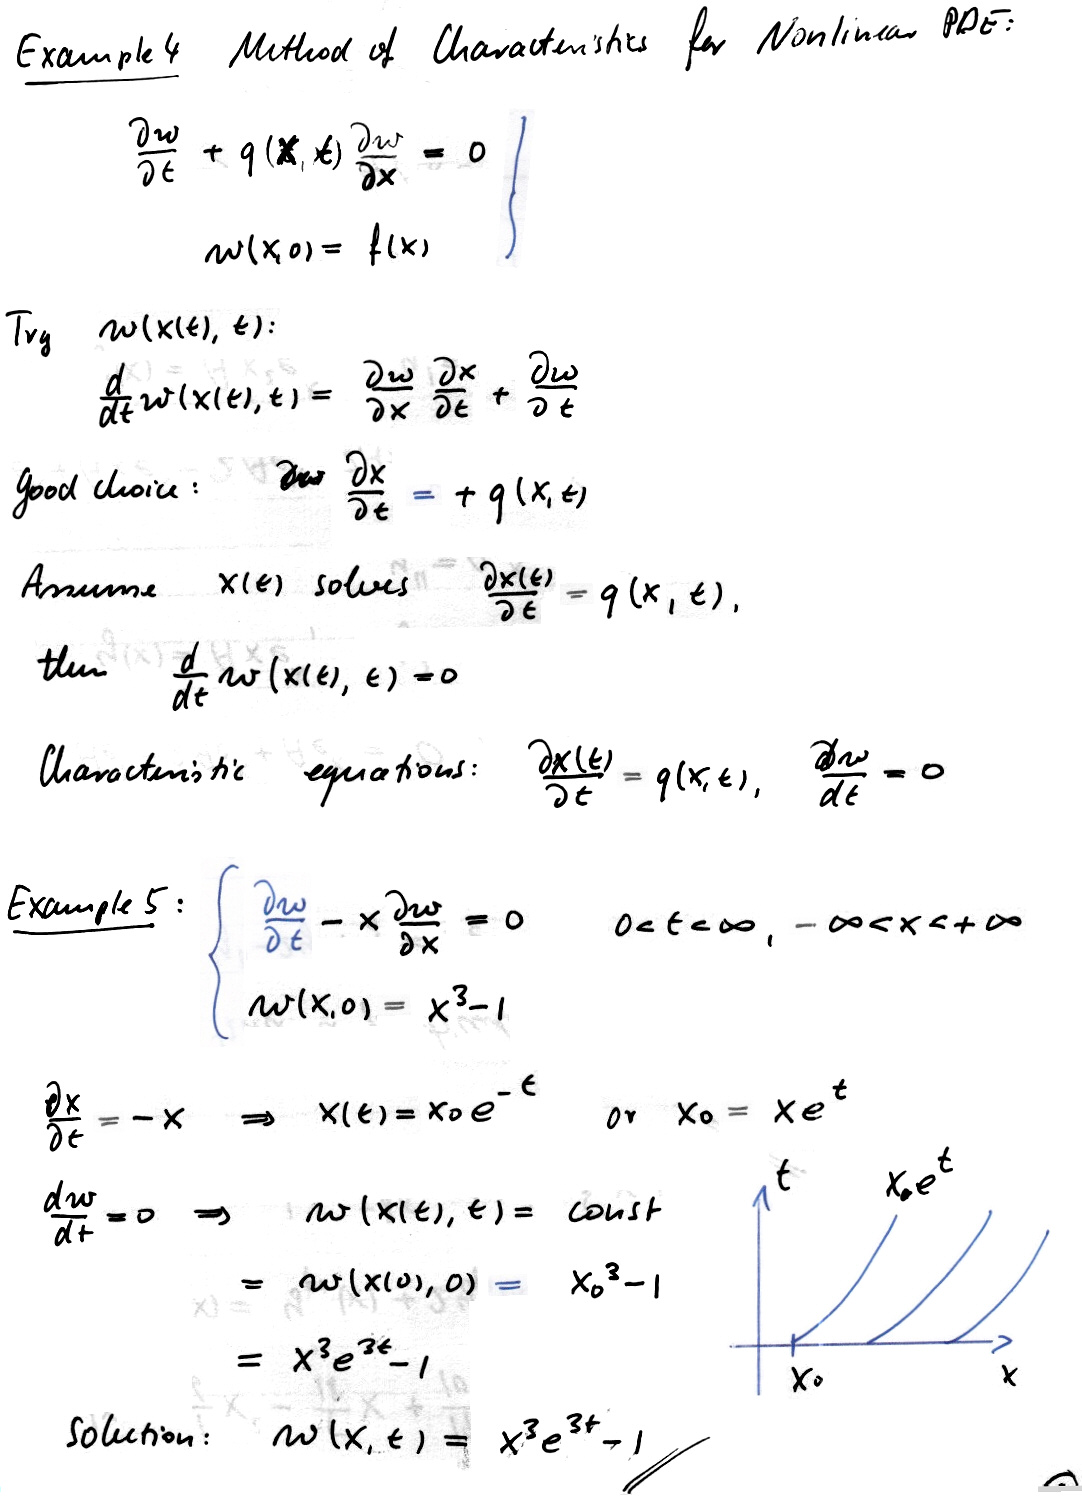 Example 4 Method of Characteristics for Nonlinear PDE:
∂w/∂t + q(x, t) ∂w/∂x = 0
w(x, 0) = f(x)
Try w(x(t), t):
d/dt w(x(t), t) = ∂w/∂x ∂x/∂t + ∂w/∂t
good choice: ∂x/∂t = + q(x, t)
Assume x(t) solves ∂x(t)/∂t = q(x, t),
then d/dt w(x(t), t) = 0
Characteristic equations: ∂x(t)/∂t = q(x, t), dw/dt = 0
Example 5: ∂w/∂t - x ∂w/∂x = 0 0 < t < ∞, - ∞ < x < + ∞
w(x, 0) = x³ - 1
∂x/∂t = - x ⇒ x(t) = x₀ e^-t or x₀ = x e^t
dw/dt = 0 ⇒ w(x(t), t) = const
= w(x(0), 0) = x₀³ - 1
= x³ e^3t - 1
Solution: w(x, t) = x³ e^3t - 1
t
x₀ e^t
x₀
x